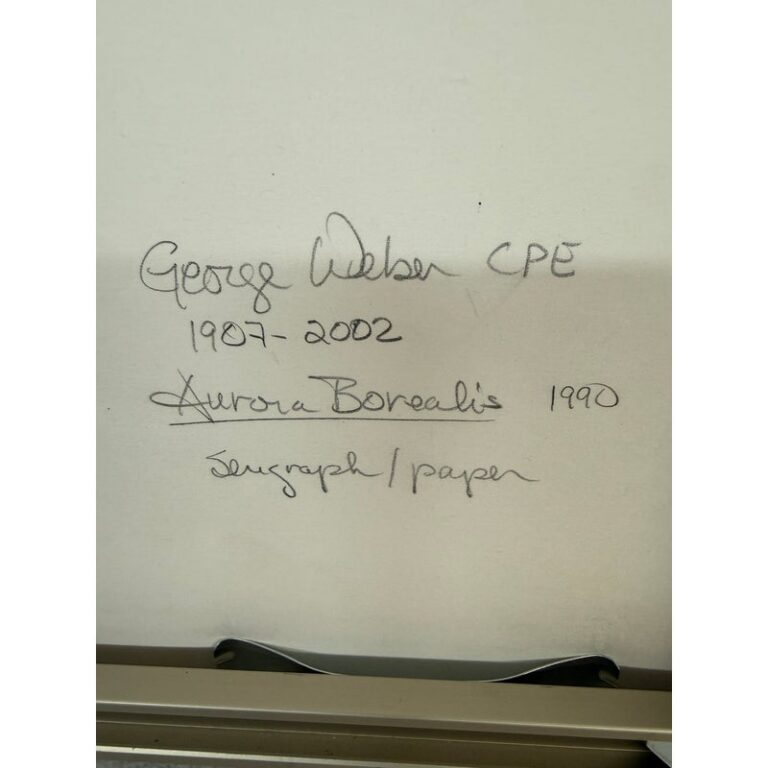 George Weber CPE
1907-2002
Aurora Borealis 1990
Serigraph/paper